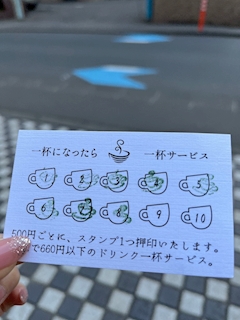 一杯になったら 一杯サービス
1 2 3 4 5
6 7 8 9 10
500円ごとに、スタンプ1つ押印いたします。
で660円以下のドリンク一杯サービス。